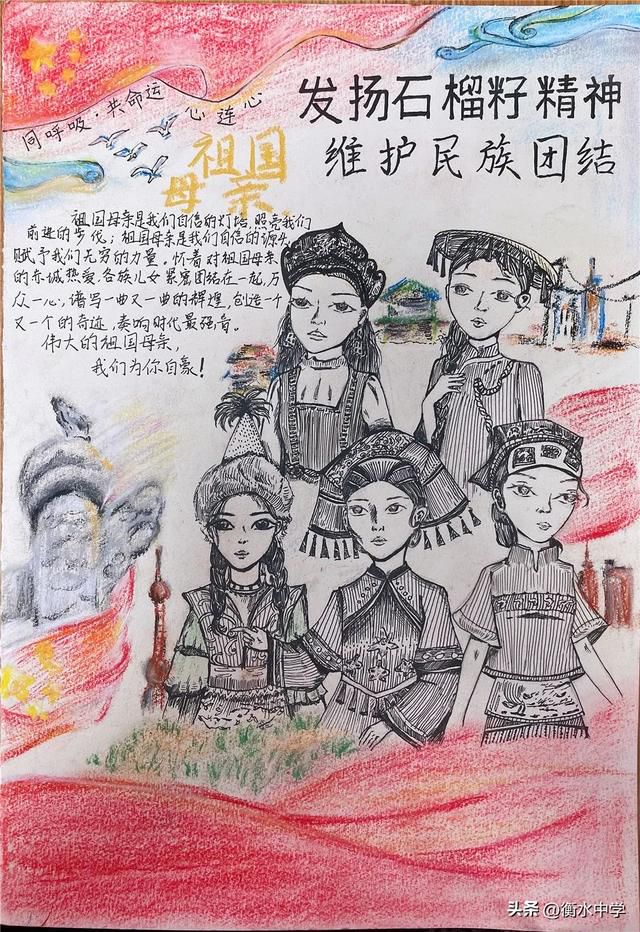 发扬石榴籽精神
维护民族团结
同呼吸·共命运 心连心
祖国
母亲
祖国母亲是我们自信的灯塔,照亮我们
前进的步伐;祖国母亲是我们自信的源头,
赋予我们无穷的力量。怀着对祖国母亲
的赤诚热爱,各族儿女紧密团结在一起,万
众一心,谱写一曲又一曲的辉煌,创造一个
又一个的奇迹,奏响时代最强音。
伟大的祖国母亲,
我们为你自豪!
头条 @衡水中学